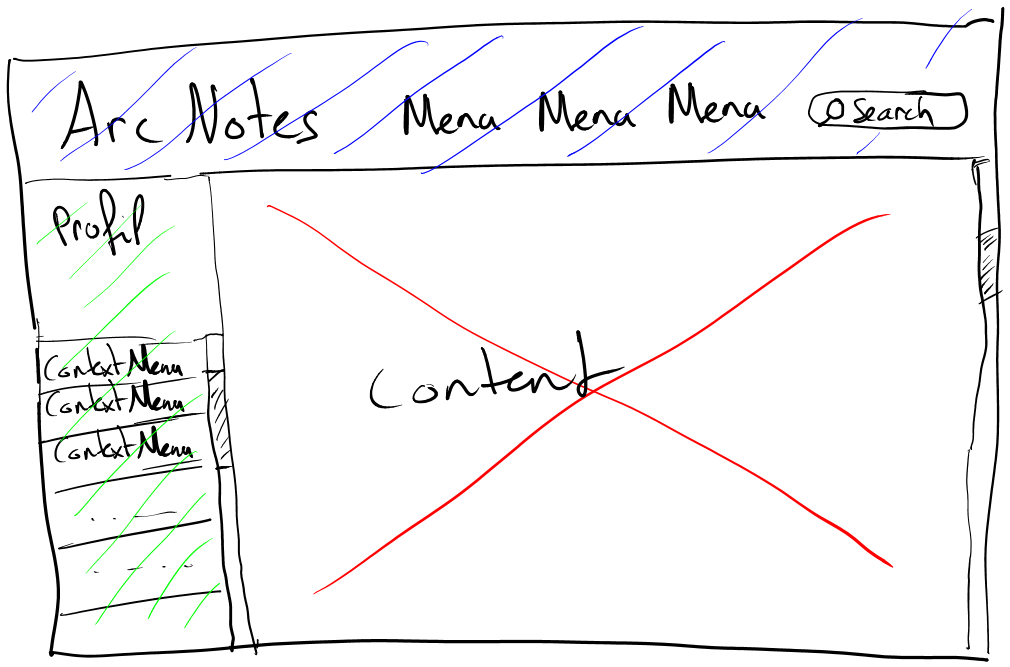 Arc Notes Menu Menu Menu Search
Profil
Context Menu
Context Menu
Context Menu
Content